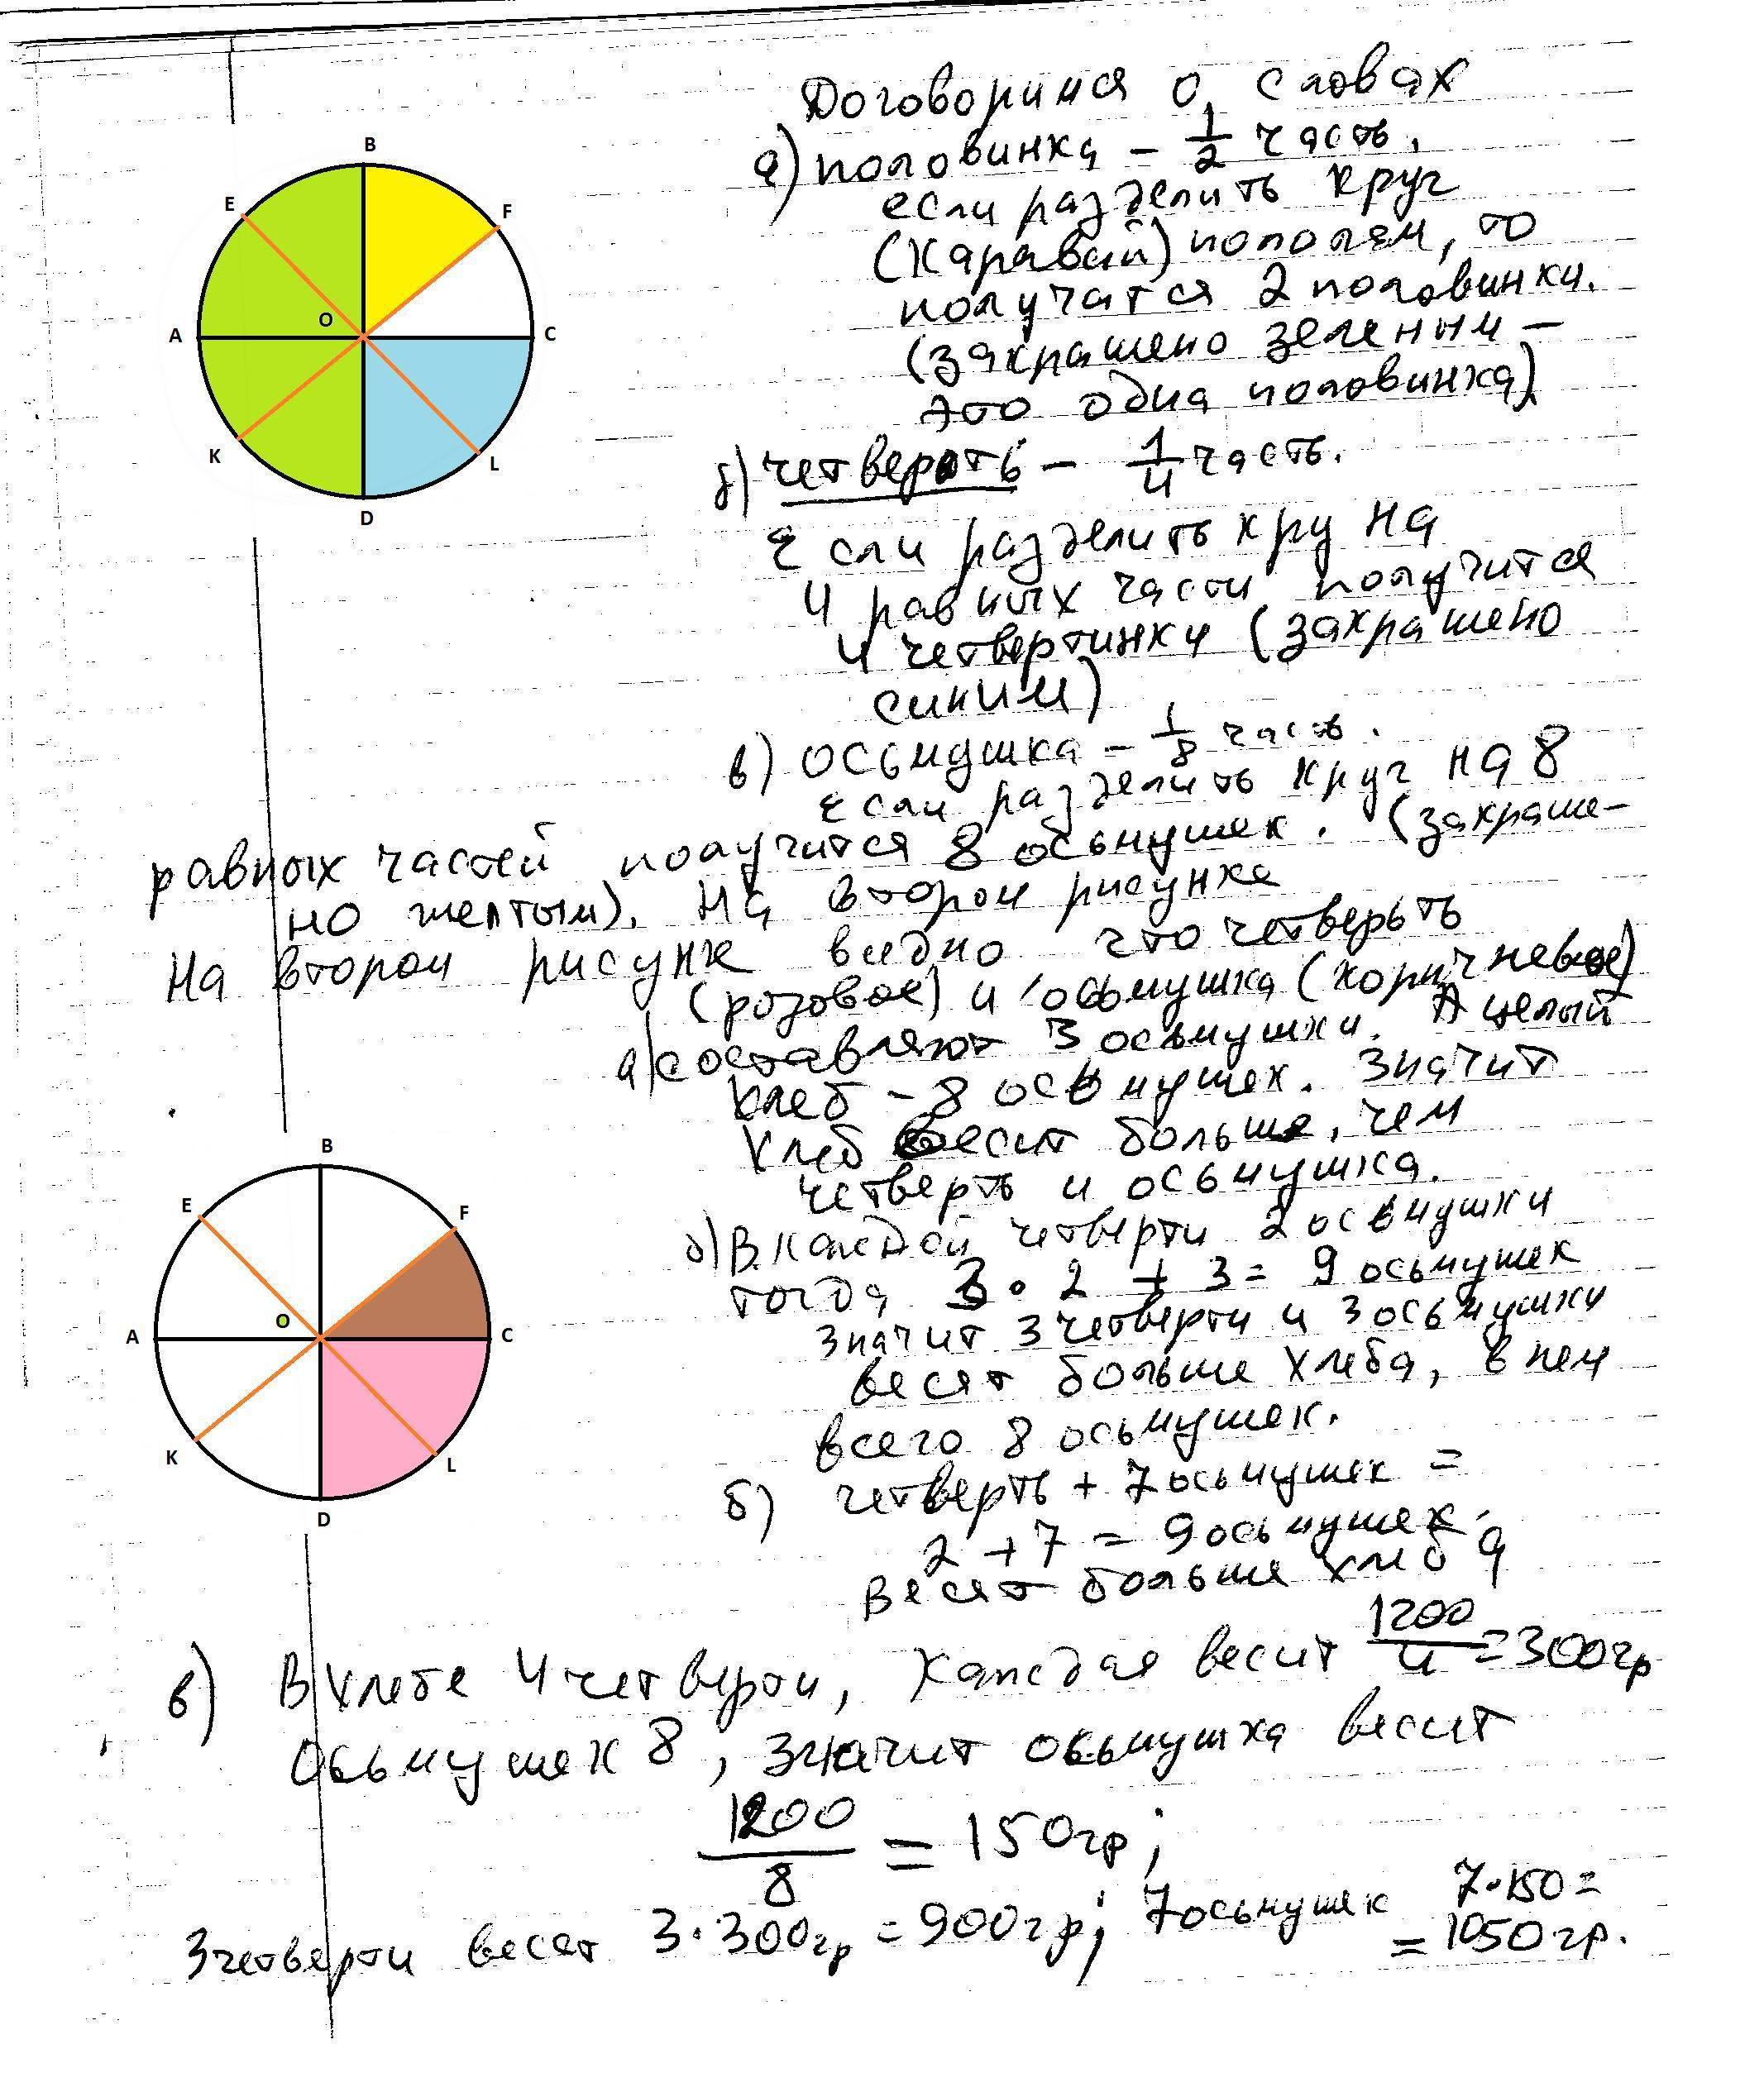 Договоримся о словах
а) половинка – 1/2 часть.
если разделить круг
(каравай) пополам, то
получатся 2 половинки.
(закрашено зеленым –
это одна половинка)
б) четверть – 1/4 часть.
Если разделить кру на
4 равных части получится
4 четвертинки (закрашено
синим)
в) осьмушка – 1/8 часть.
Если разделить круг на 8
равных частей получится 8 осьмушек. (закраше-
но желтым). На втором рисунке
На втором рисунке видно что четверть
(розовое) и осьмушка (коричневое)
а) составляют 3 осьмушки. А целый
хлеб – 8 осьмушек. Значит
хлеб весит больше, чем
четверть и осьмушка.
б) В каждой четверти 2 осьмушки
тогда 3 • 2 + 3 = 9 осьмушек
значит 3 четверти и 3 осьмушки
весят больше хлеба, в нем
всего 8 осьмушек.
б) четверть + 7 осьмушек =
2 + 7 = 9 осьмушек.
весят больше хлеба
в) В хлебе 4 четверти, каждая весит 1200/4 = 300гр
Осьмушек 8, значит осьмушка весит
1200/8 = 150гр;
3 четверти весят 3·300гр = 900гр; 7 осьмушек 7·150 =
= 1050гр.
B
E
F
O
A
C
K
L
D
B
E
F
O
A
C
K
L
D